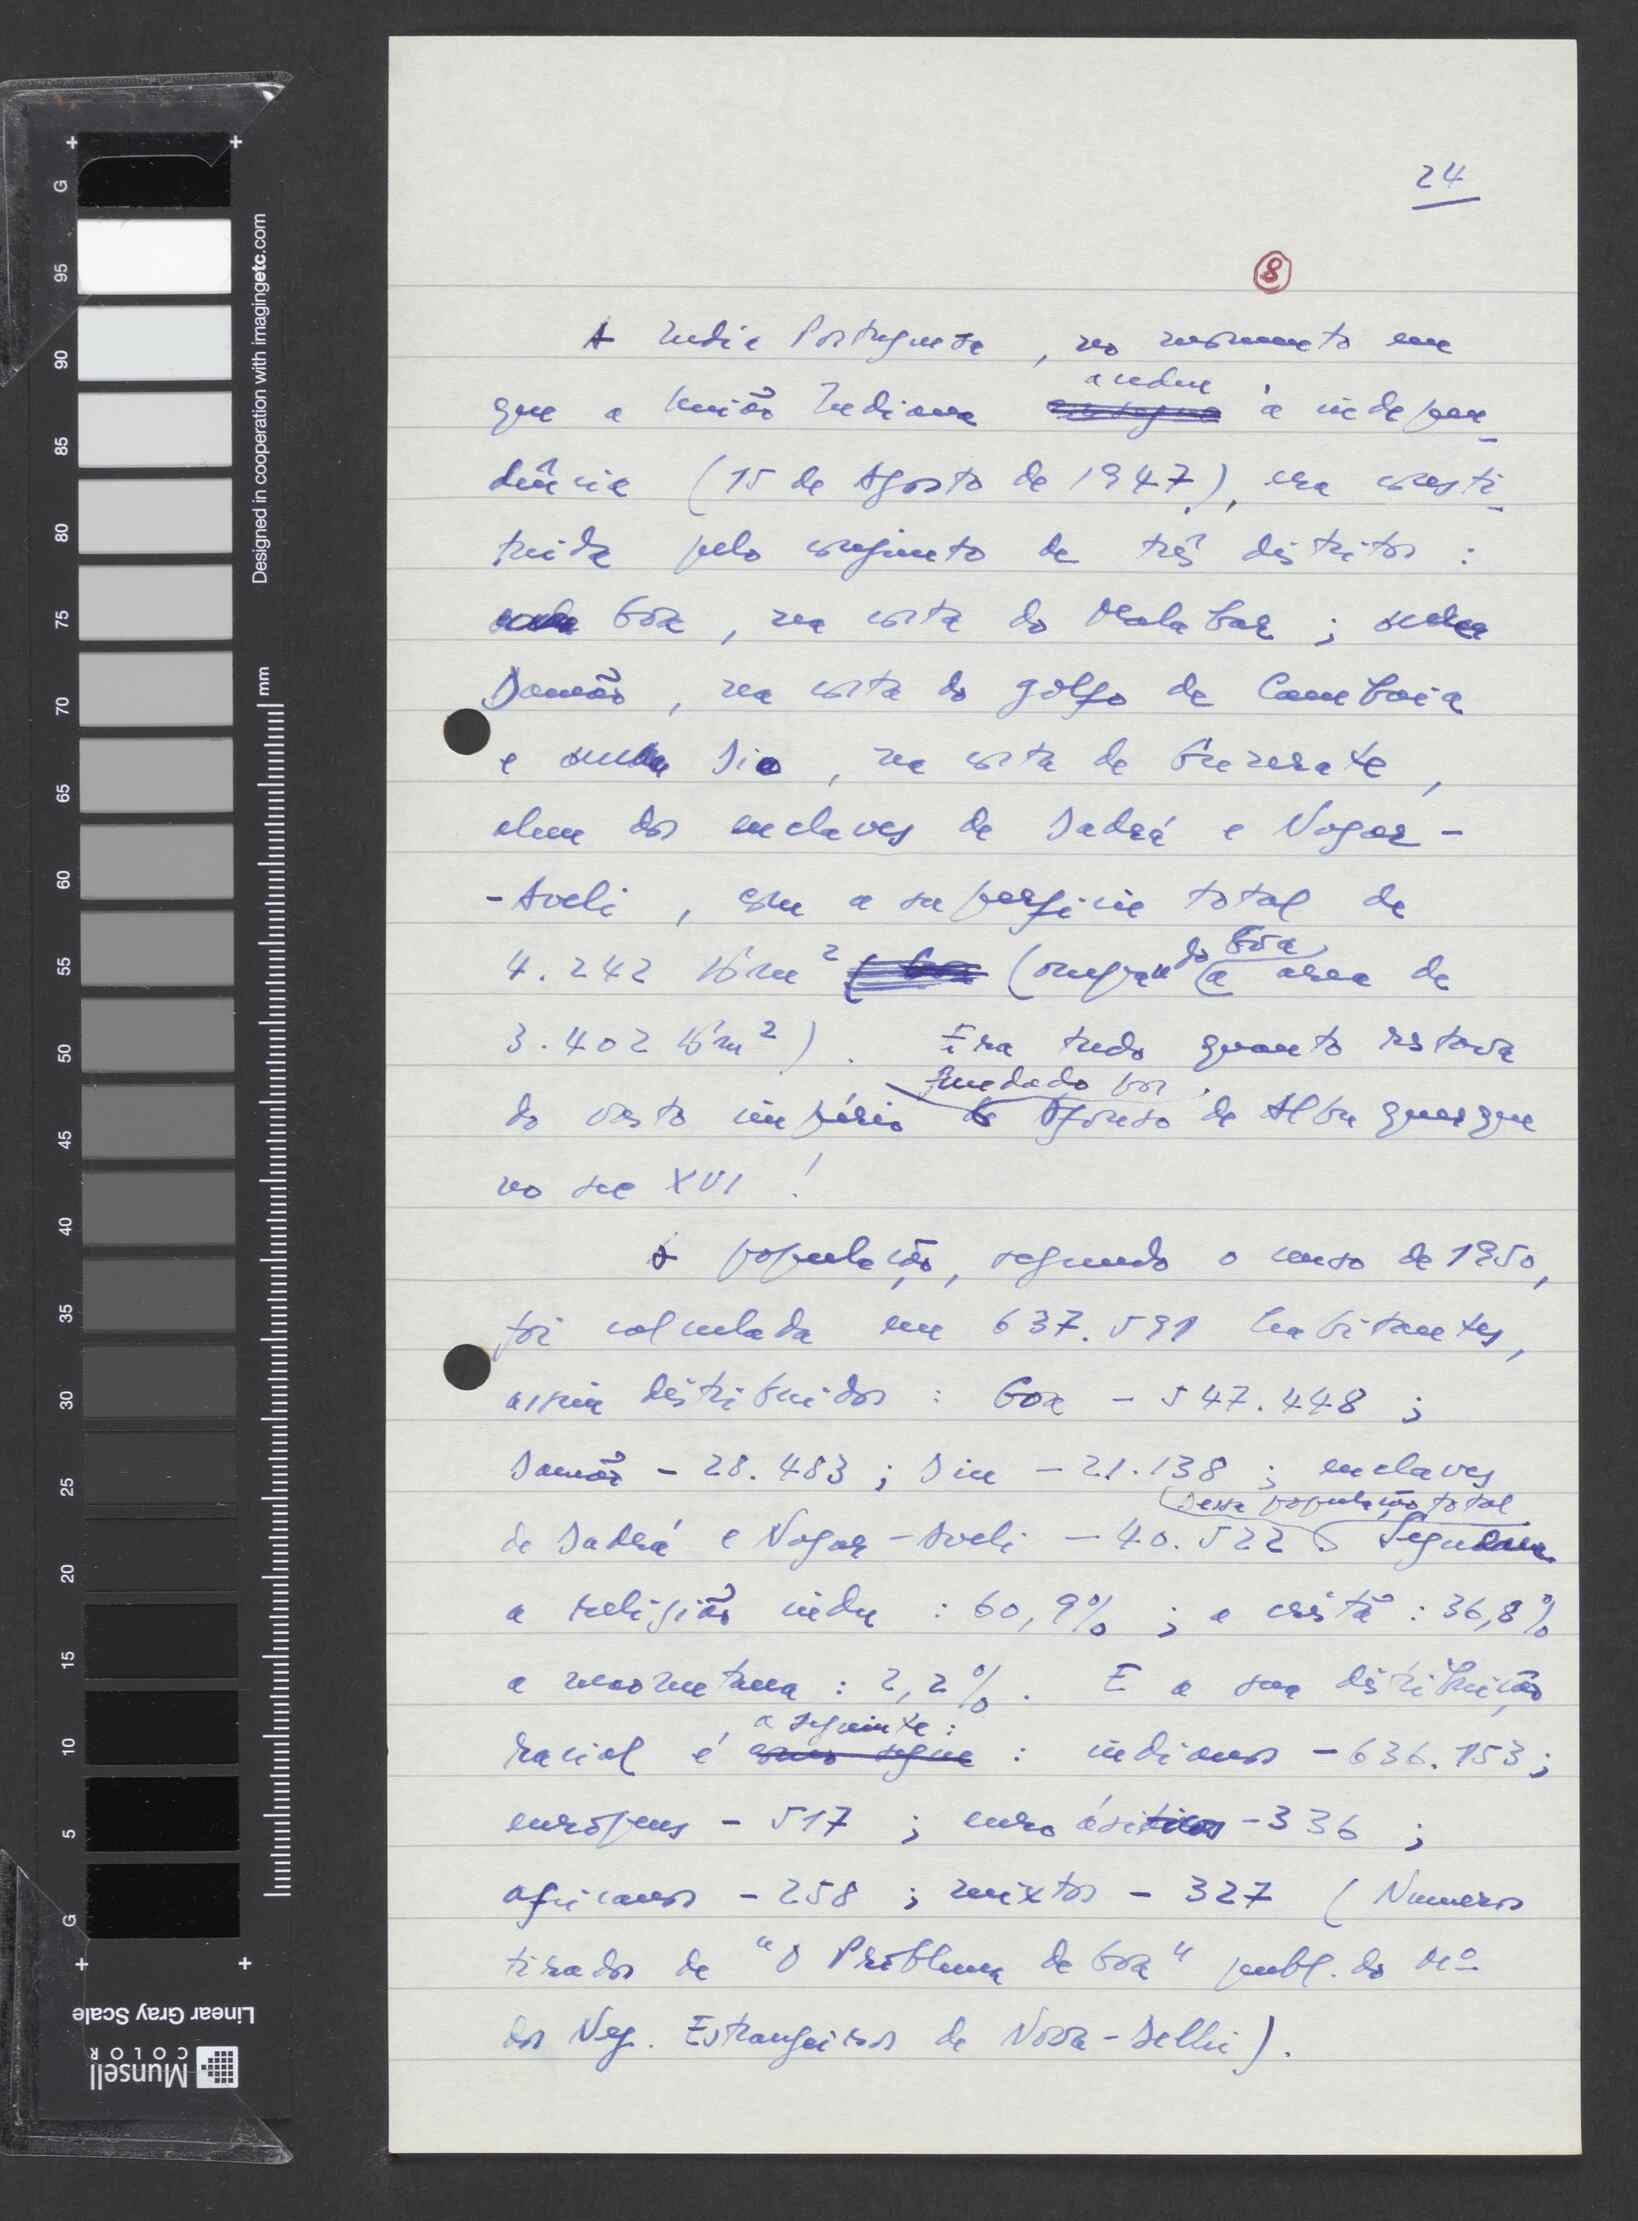 24
8
A India Portuguesa, no momento em
que a União Indiana acedeu à indepen-
dência (15 de Agosto de 1947), era consti-
tuida pelo conjunto de três distritos :
Gôa, na costa do Malabar ;
Damão, na costa do golfo de Cambaia
e Dio, na costa de Guzerate,
alem dos enclaves de Dadrá e Nagar-
-Aveli, com a superficie total de
4.242 Km² (ocupando Gôa a area de
3.402 Km²). Era tudo quanto restava
do vasto império fundado por Afonso de Albuquerque
no sec XVI !
A população, segundo o censo de 1950,
foi calculada em 637.591 habitantes,
assim distribuidos : Goa - 547.448 ;
Damão - 28.483 ; Diu - 21.138 ; enclaves
de Dadrá e Nagar-Aveli - 40.522. Dessa população total
a religião indu : 60,9% ; a cristã : 36,8%
a maometana : 2,2%. E a sua distribuição
racial é a seguinte : indianos - 636.153 ;
europeus - 517 ; euroásiticos - 336 ;
africanos - 258 ; mixtos - 327 (Numeros
tirados de "O Problema de Goa" publ. do Mº
dos Neg. Estrangeiros de Nova-Delhi).
Designed in cooperation with imagingetc.com
mm
G 95 90 85 80 75 70 65 60 55 50 45 40 35 30 25 20 15 10 5 G
Linear Gray Scale
Munsell
COLOR